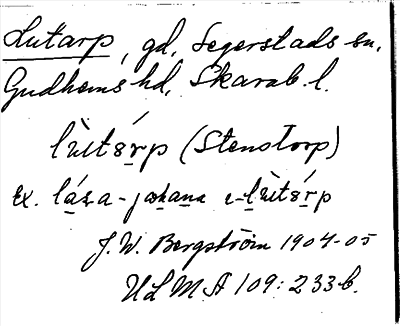 Lutarp, gd, Segerstads sn,
Gudhems hd, Skarab. l.
lùtsŕp (Stenstorp)
Ex. lása-johana i-lùtsŕp
J. W. Bergström 1904-05
ULMA 109: 233 b.